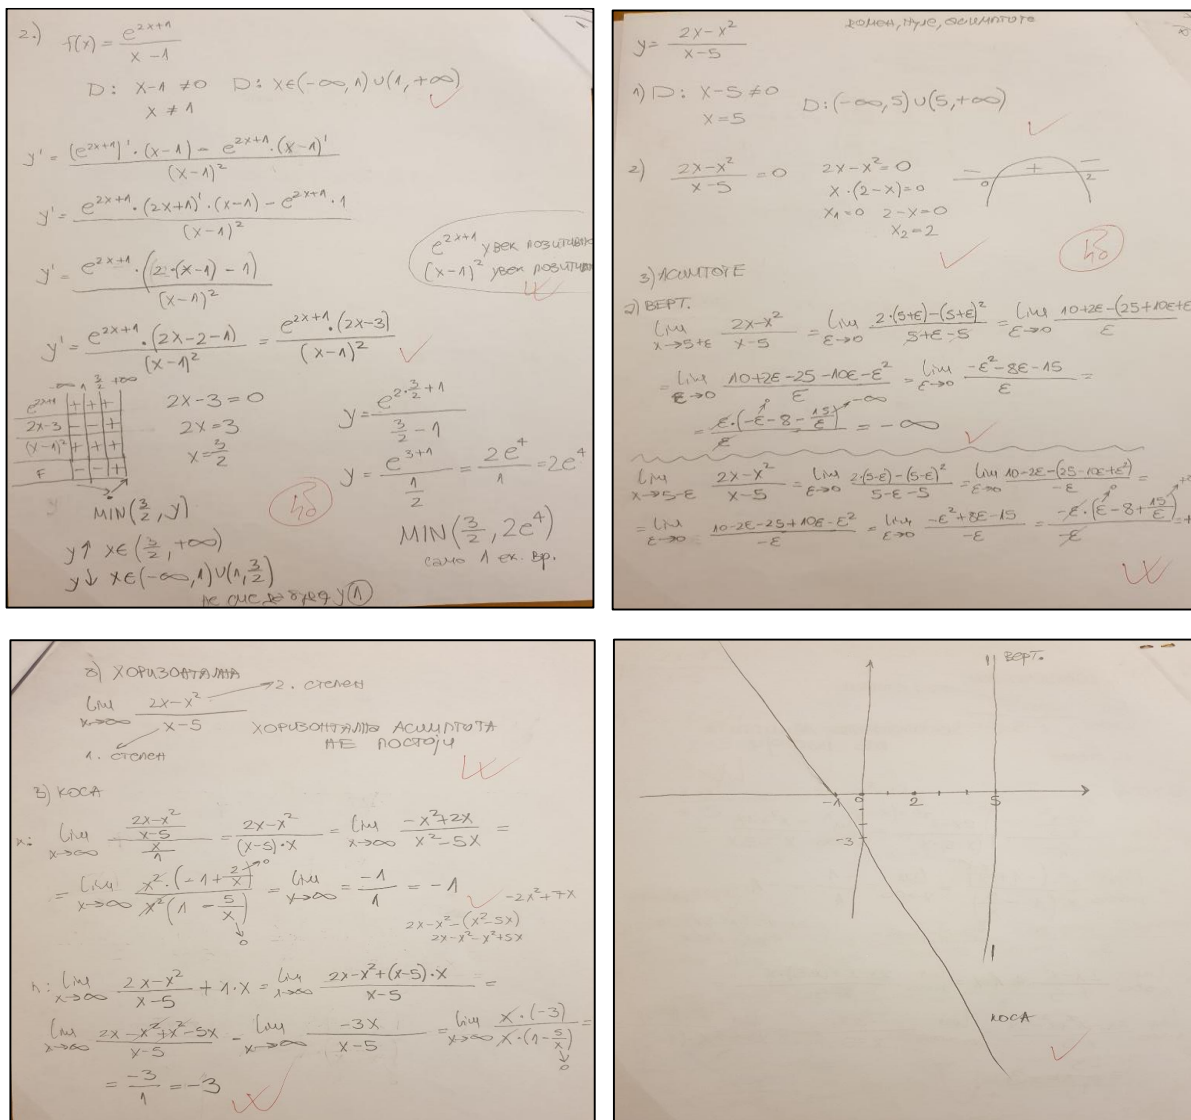 2.) f(x) = e^(2x+1) / (x-1)
D: x-1 ≠0 D: x∈(-∞,1)∪(1,+∞)
x ≠ 1
y' = ((e^(2x+1))'·(x-1) - e^(2x+1)·(x-1)') / (x-1)²
y' = (e^(2x+1)·(2x+1)'·(x-1) - e^(2x+1)·1) / (x-1)²
e^(2x+1) увек позитивно
(x-1)² увек позитивн
y' = (e^(2x+1)·(2·(x-1)-1)) / (x-1)²
y' = (e^(2x+1)·(2x-2-1)) / (x-1)² = (e^(2x+1)·(2x-3)) / (x-1)²
-∞ 1 3/2 +∞
e^(2x+1) + + +
2x-3 - - +
(x-1)² + + +
F - - +
2x-3=0
2x=3
x=3/2
y = e^(2·3/2+1) / (3/2 - 1)
y = e^(3+1) / (1/2) = 2e⁴/1 = 2e⁴
MIN(3/2, y)
MIN(3/2, 2e⁴)
само 1 ек. вр.
y↑ x∈(3/2, +∞)
y↓ x∈(-∞,1)∪(1,3/2)
не сме да буде у 1
ДОМЕН, НУЛЕ, АСИМПТОТЕ
y = (2x-x²) / (x-5)
1) D: x-5 ≠0 D:(-∞,5)∪(5,+∞)
x=5
2) (2x-x²)/(x-5) = 0 2x-x²=0
x·(2-x)=0
x₁=0 2-x=0
x₂=2
- + -
0 2
3) АСИМТОТЕ
2) ВЕРТ.
lim x→5+ε (2x-x²)/(x-5) = lim ε→0 (2·(5+ε)-(5+ε)²)/(5+ε-5) = lim ε→0 (10+2ε-(25+10ε+ε
/ε
= lim ε→0 (10+2ε-25-10ε-ε²)/ε = lim ε→0 (-ε²-8ε-15)/ε =
= ε·(-ε-8-15/ε)/ε = -∞
lim x→5-ε (2x-x²)/(x-5) = lim ε→0 (2·(5-ε)-(5-ε)²)/(5-ε-5) = lim ε→0 (10-2ε-(25-10ε+ε²))/(-ε) =
= lim ε→0 (10-2ε-25+10ε-ε²)/(-ε) = lim ε→0 (-ε²+8ε-15)/(-ε) = -ε·(ε-8+15/ε)/(-ε) = +
ХОРИЗОНТАЛНА
lim x→∞ (2x-x²)/(x-5)
2. СТЕПЕН
1. СТЕПЕН
ХОРИЗОНТАЛНА АСИМПТОТА
НЕ ПОСТОЈИ
3) КОСА
lim x→∞ ((2x-x²)/(x-5))/(x/1) = (2x-x²)/((x-5)·x) = lim x→∞ (-x²+2x)/(x²-5x) =
= lim x→∞ (x²·(-1+2/x))/(x²(1-5/x)) = lim x→∞ = -1/1 = -1
-2x²+7x
2x-x²-(x²-5x)
2x-x²-x²+5x
n: lim x→∞ (2x-x²)/(x-5) + 1·x = lim x→∞ (2x-x²+(x-5)·x)/(x-5) =
lim x→∞ (2x-x²+x²-5x)/(x-5) = lim x→∞ (-3x)/(x-5) = lim x→∞ (x·(-3))/(x·(1-5/x)) =
= -3/1 = -3
ВЕРТ.
-1 0 2 5
-3
КОСА